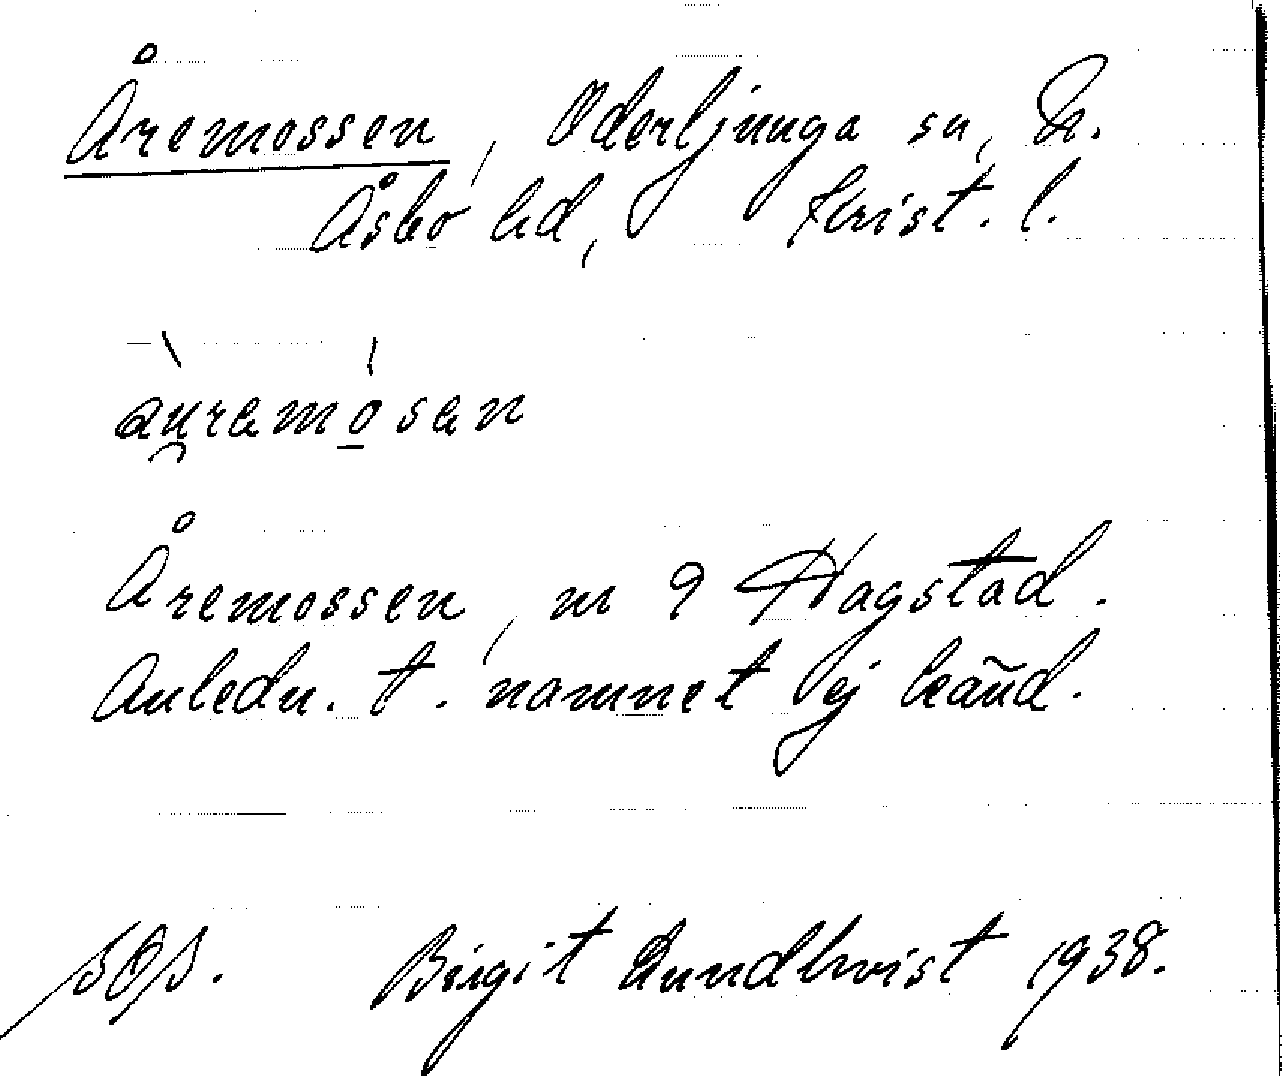 Åremossen, Oderljunga sn, N.
Åsbo hd, Krist. l.
au̯remo̲sen
Åremossen, m 9 Hagstad.
Anledn. t. namnet ej känd.
Birgit Lundkvist 1938.